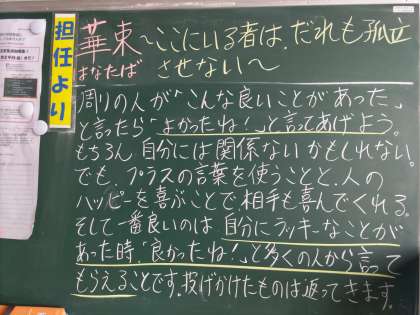 担任より
華束～ここにいる者は、だれも孤立
はなたば させない～
周りの人が「こんな良いことがあった」
と言ったら「よかったね!」と言ってあげよう。
もちろん自分には関係ないかもしれない。
でも、プラスの言葉を使うことと、人の
ハッピーを喜ぶことで相手も喜んでくれる。
そして一番良いのは、自分にラッキーなことが
あった時、「良かったね!」と多くの人から言って
もらえることです。投げかけたものは返ってきます。